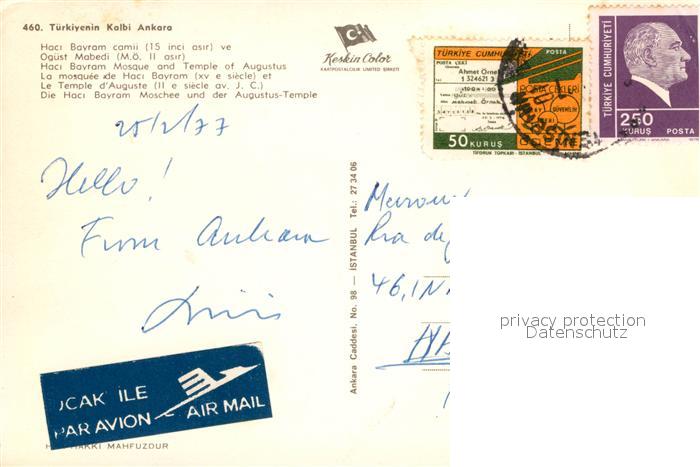 460. Türkiyenin Kalbi Ankara
Hacı Bayram camii (15 inci asır) ve
Ogüst Mabedi (M.Ö. II asır)
Hacı Bayram Mosque and Temple of Augustus
La mosquée de Hacı Bayram (xv e siècle) et
Le Temple d'Auguste (II e siècle av. J. C.)
Die Hacı Bayram Moschee und der Augustus-Temple
Keskin Color
KARTPOSTALCILIK LIMITED ŞİRKETİ
TÜRKİYE CUMHURİYETİ POSTA
POSTA ÇEKİ
Ahmet Örnek
1324621 3
POSTA ÇEKLERİ
50 KURUŞ
TİFDRUK TOPKAPI - İSTANBUL
TÜRKİYE CUMHURİYETİ
250
KURUŞ POSTA
25/2/77
Hello!
From Ankara
Ankara Caddesi, No. 98 — İSTANBUL Tel.: 27 34 06
46, IN
UÇAK İLE
PAR AVION AIR MAIL
HAKKI MAHFUZDUR
privacy protection
Datenschutz